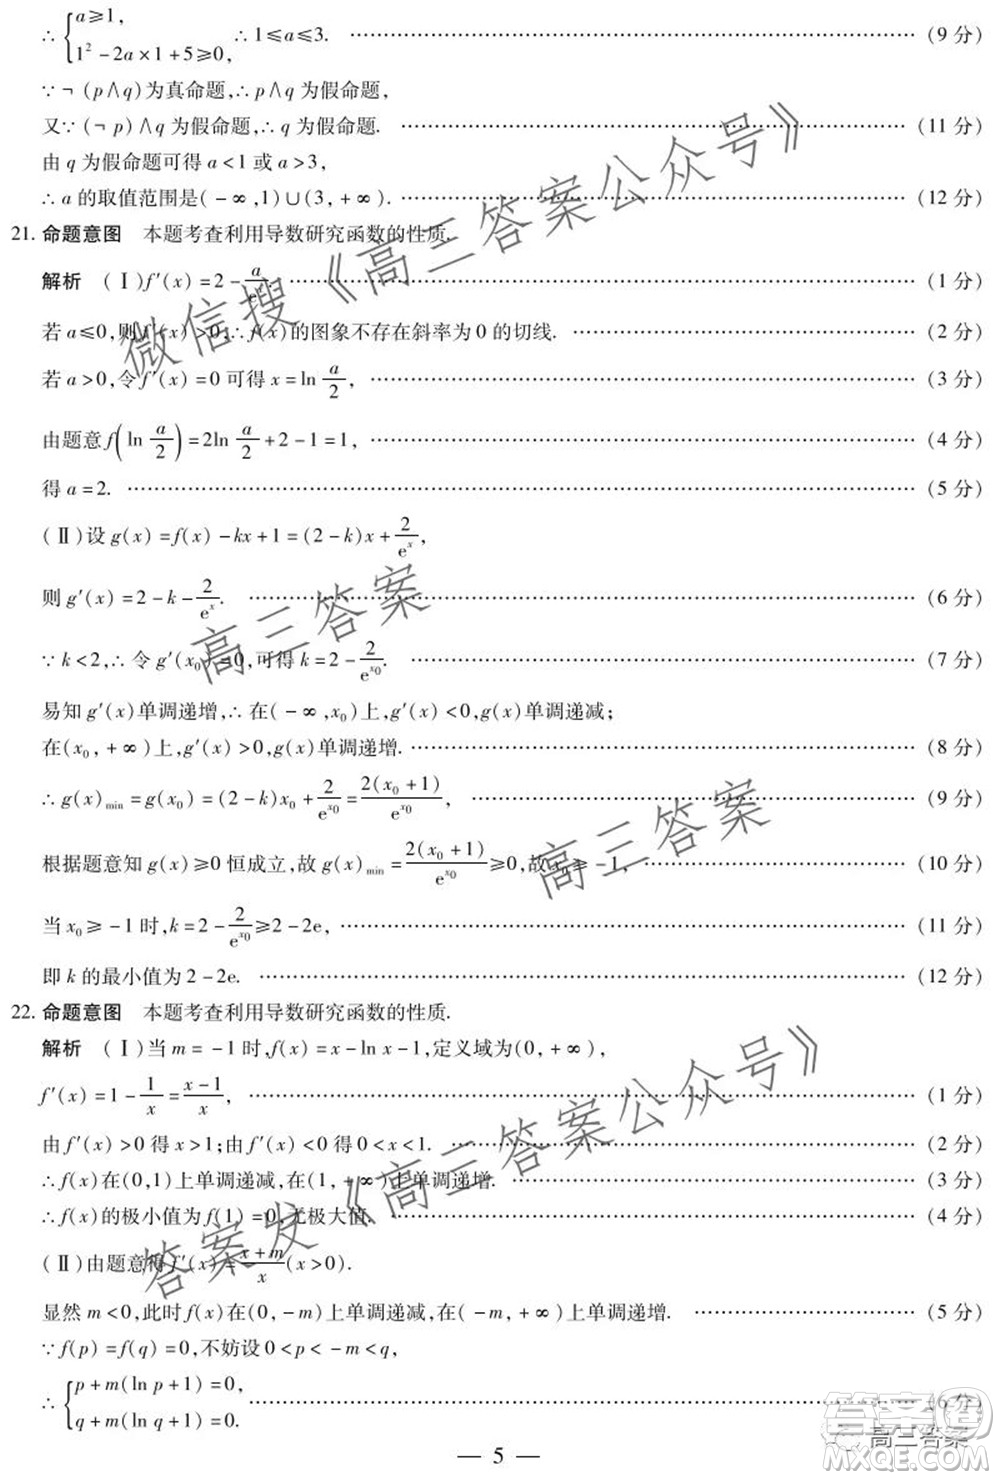 ∴ { a≥1, 1²-2a×1+5≥0, ∴ 1≤a≤3. ……(9 分)
∵ ¬ (p∧q)为真命题,∴ p∧q 为假命题,
又∵ (¬ p)∧q 为假命题,∴ q 为假命题. ……(11 分)
由 q 为假命题可得 a<1 或 a>3,
∴ a 的取值范围是(-∞,1)∪(3,+∞). ……(12 分)
21. 命题意图 本题考查利用导数研究函数的性质.
解析 (Ⅰ)f′(x)=2-a/eˣ. ……(1 分)
若 a≤0,则f′(x)>0,∴ f(x)的图象不存在斜率为 0 的切线. ……(2 分)
若 a>0,令 f′(x)=0 可得 x=ln a/2, ……(3 分)
由题意 f(ln a/2)=2ln a/2+2-1=1, ……(4 分)
得 a=2. ……(5 分)
(Ⅱ)设 g(x)=f(x)-kx+1=(2-k)x+2/eˣ,
则 g′(x)=2-k-2/eˣ. ……(6 分)
∵ k<2,∴ 令 g′(x₀)=0,可得 k=2-2/e^(x₀). ……(7 分)
易知 g′(x)单调递增,∴ 在(-∞,x₀)上,g′(x)<0,g(x)单调递减;
在(x₀,+∞)上,g′(x)>0,g(x)单调递增. ……(8 分)
∴ g(x)min=g(x₀)=(2-k)x₀+2/e^(x₀)=2(x₀+1)/e^(x₀), ……(9 分)
根据题意知 g(x)≥0 恒成立,故 g(x)min=2(x₀+1)/e^(x₀)≥0,故x₀≥-1, ……(10 分)
当 x₀≥-1 时,k=2-2/e^(x₀)≥2-2e, ……(11 分)
即 k 的最小值为 2-2e. ……(12 分)
22. 命题意图 本题考查利用导数研究函数的性质.
解析 (Ⅰ)当 m=-1 时,f(x)=x-ln x-1,定义域为(0,+∞),
f′(x)=1-1/x=(x-1)/x, ……(1 分)
由 f′(x)>0 得 x>1;由 f′(x)<0 得 0<x<1. ……(2 分)
∴ f(x)在(0,1)上单调递减,在(1,+∞)上单调递增. ……(3 分)
∴ f(x)的极小值为 f(1)=0,无极大值. ……(4 分)
(Ⅱ)由题意得 f′(x)=(x+m)/x(x>0).
显然 m<0,此时 f(x)在(0,-m)上单调递减,在(-m,+∞)上单调递增. ……(5 分)
∵ f(p)=f(q)=0,不妨设 0<p<-m<q,
∴ { p+m(ln p+1)=0, q+m(ln q+1)=0. ……(6 分)
— 5 —
微信搜《高三答案公众号》
高三答案
高三答案
答案发《高三答案公众号》
答案圈
高三答案
MXQE.COM